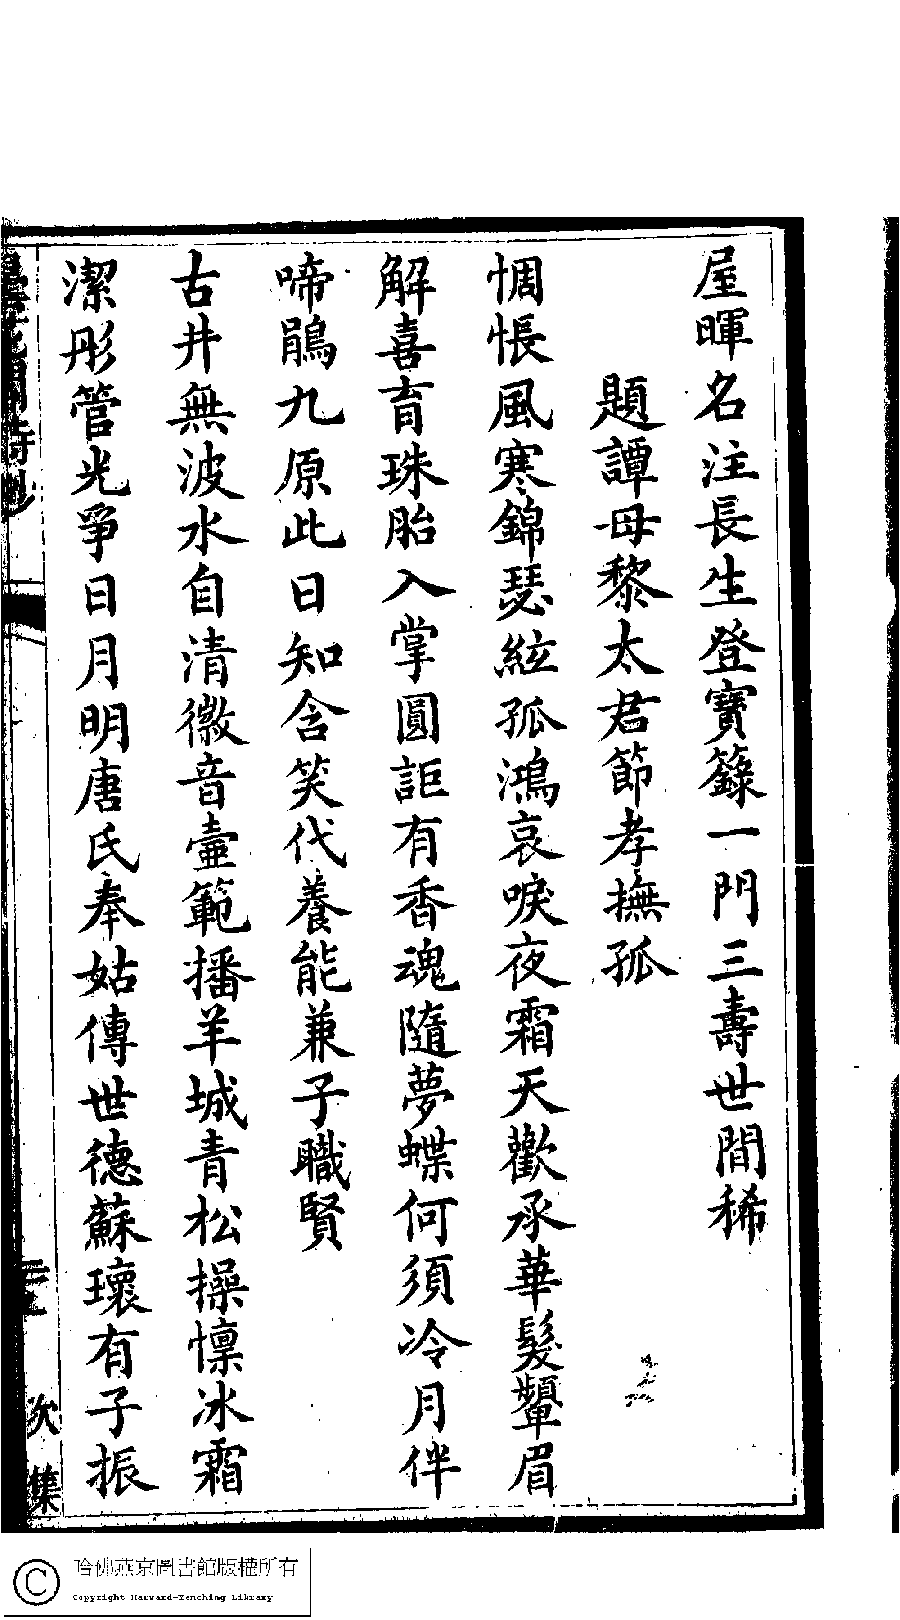 屋暉名注長生登寶籙一門三壽世間稀
題譚母黎太君節孝撫孤
惆悵風寒錦瑟絃孤鴻哀唳夜霜天歡承華髮顰眉
解喜育珠胎入掌圓詎有香魂隨夢蝶何須冷月伴
啼鵑九原此日知含笑代養能兼子職賢
古井無波水自清徽音壼範播羊城青松操懍冰霜
潔彤管光爭日月明唐氏奉姑傳世德蘇瓌有子振
次集
哈佛燕京圖書館版權所有
Copyright Harvard-Yenching Library